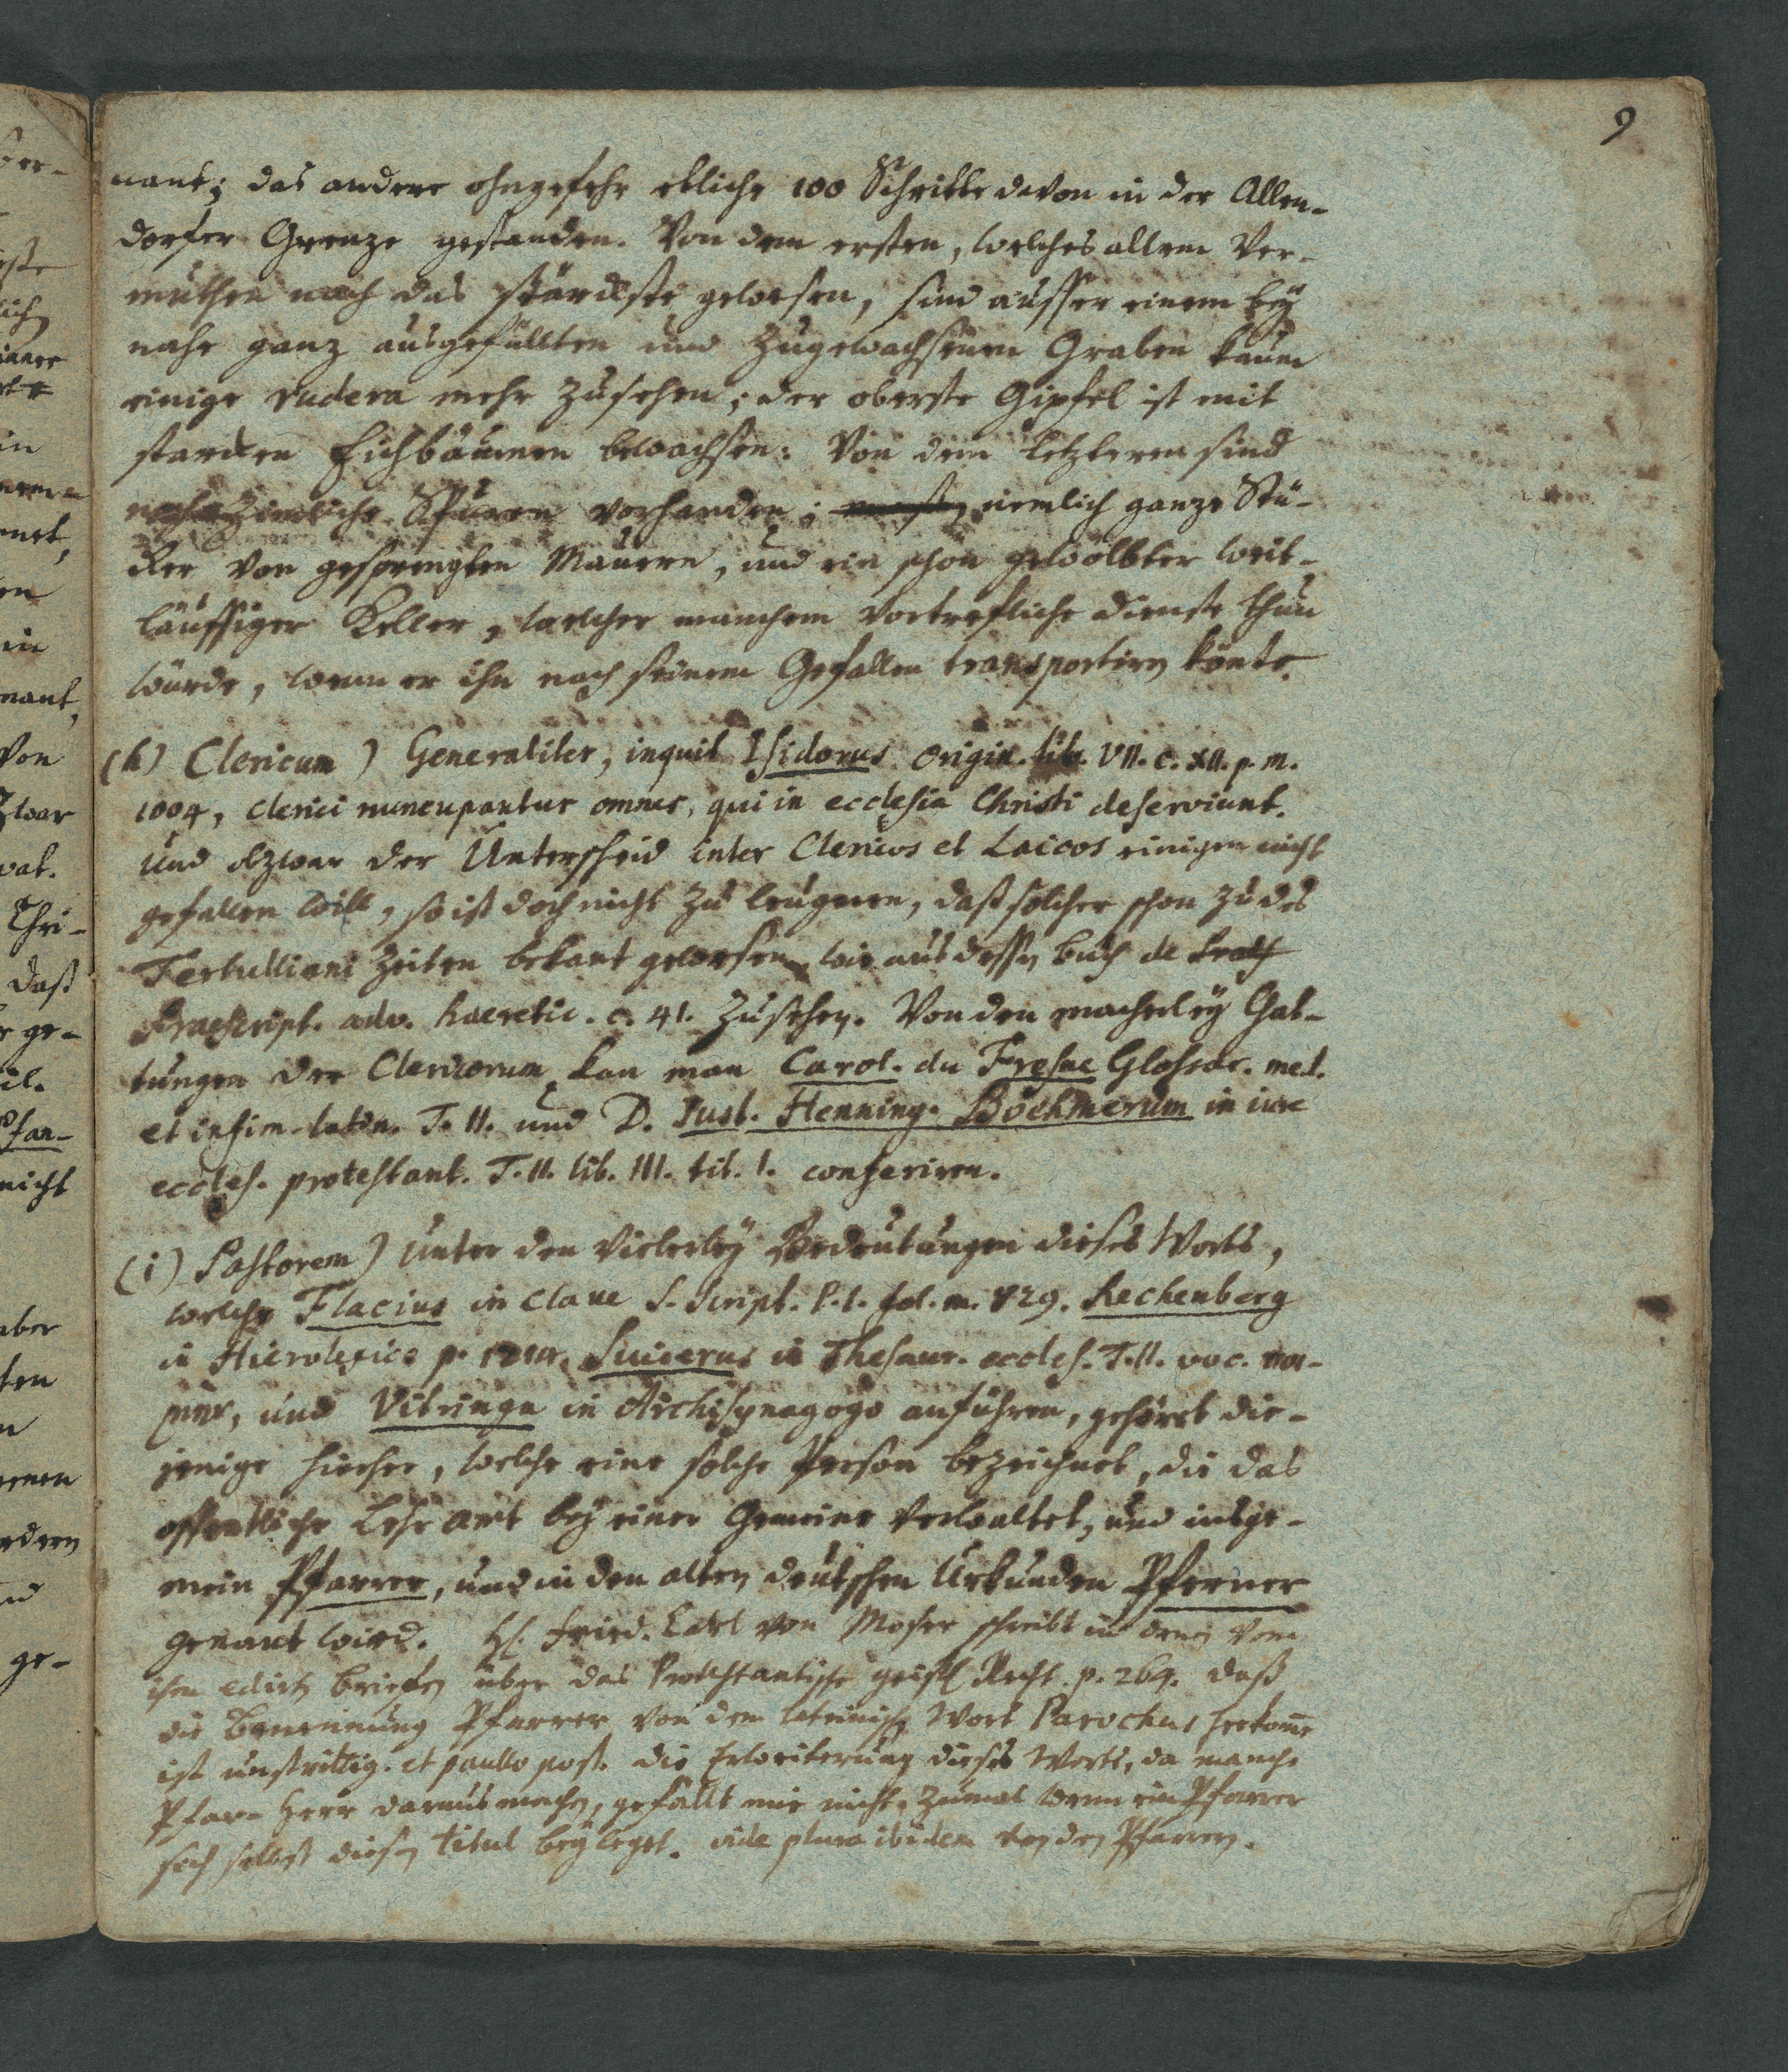 9
nant; das andere ohngefehr etliche 100 Schritte davon in der Allen-
dorfer Grenze gestanden. Von dem ersten, welches allem Ver-
muthen nach das stärckste gewesen, sind ausser einem bey
nahe ganz ausgefüllten und zugewachsenen Graben kaum
einige rudera mehr zusehen; der oberste Gipfel ist mit
starcken Eichbäumen bewachsen: Von dem letzteren sind
noch zimliche Spuren vorhanden; nemlich ganze Stü-
cker von gesprengten Mauern, und ein schön gewölbter weit-
läuffiger Keller, welcher manchem vortrefliche Dienste thun
würde, wenn er ihn nach seinem Gefallen transportiren könte.
(h) Clericum) Generaliter, inquit Isidorus Origin. lib. VII. c. XII. p. m.
1004, clerici nuncupantur omnes, qui in ecclesia Christi deserviunt.
Und obzwar der Unterscheid inter Clericos et Laicos einigen nicht
gefallen will, so ist doch nicht zu leugnen, daß solcher schon zu des
Tertulliani Zeiten bekant gewesen, wie aus dessen buch de
Praescript. adv. haeretic. c. 41. zusehen. Von den macherley Gat-
tungen der Clericorum kan man Carol. du Fresne Glossar. med.
et infim. latin. T. II. und D. Just. Henning. Böehmerum in iure
eccles. protestant. T. II. lib. III. tit. I. conferiren.
(i) Pastorem) Unter den vielerley Bedeutungen dieses Worts,
welche Flacius in Clave S. Script. P. I. fol. m. 829. Rechenberg
in Hierolexico p. 1214. Suicerus in Thesaur. eccles. T. II. voc. ποι-
μην, und Vitringa in Archisynagogo anführen, gehöret die-
jenige hierher, welche eine solche Person bezeichnet, die das
offentliche Lehramt bey einer Gemeine verwaltet, und insge-
mein Pfarrer, und in den alten deutschen Urkunden Pferner
genant wird. H. Fried. Carl von Moser schreibt in denen von
ihm edirten briefen über das Protestantische geistl. Recht. p. 269. daß
die Benennung Pfarrer von dem lateinischen Wort Parochus herkome
ist unstrittig. et paullo post. die Erweiterung dieses Worts, da manche
Pfar- Herr daraus machen, gefällt mir nicht, zumal wenn ein Pfarrer
sich selbst diesen titul beyleget. vide plura ibidem von den Pfarren.